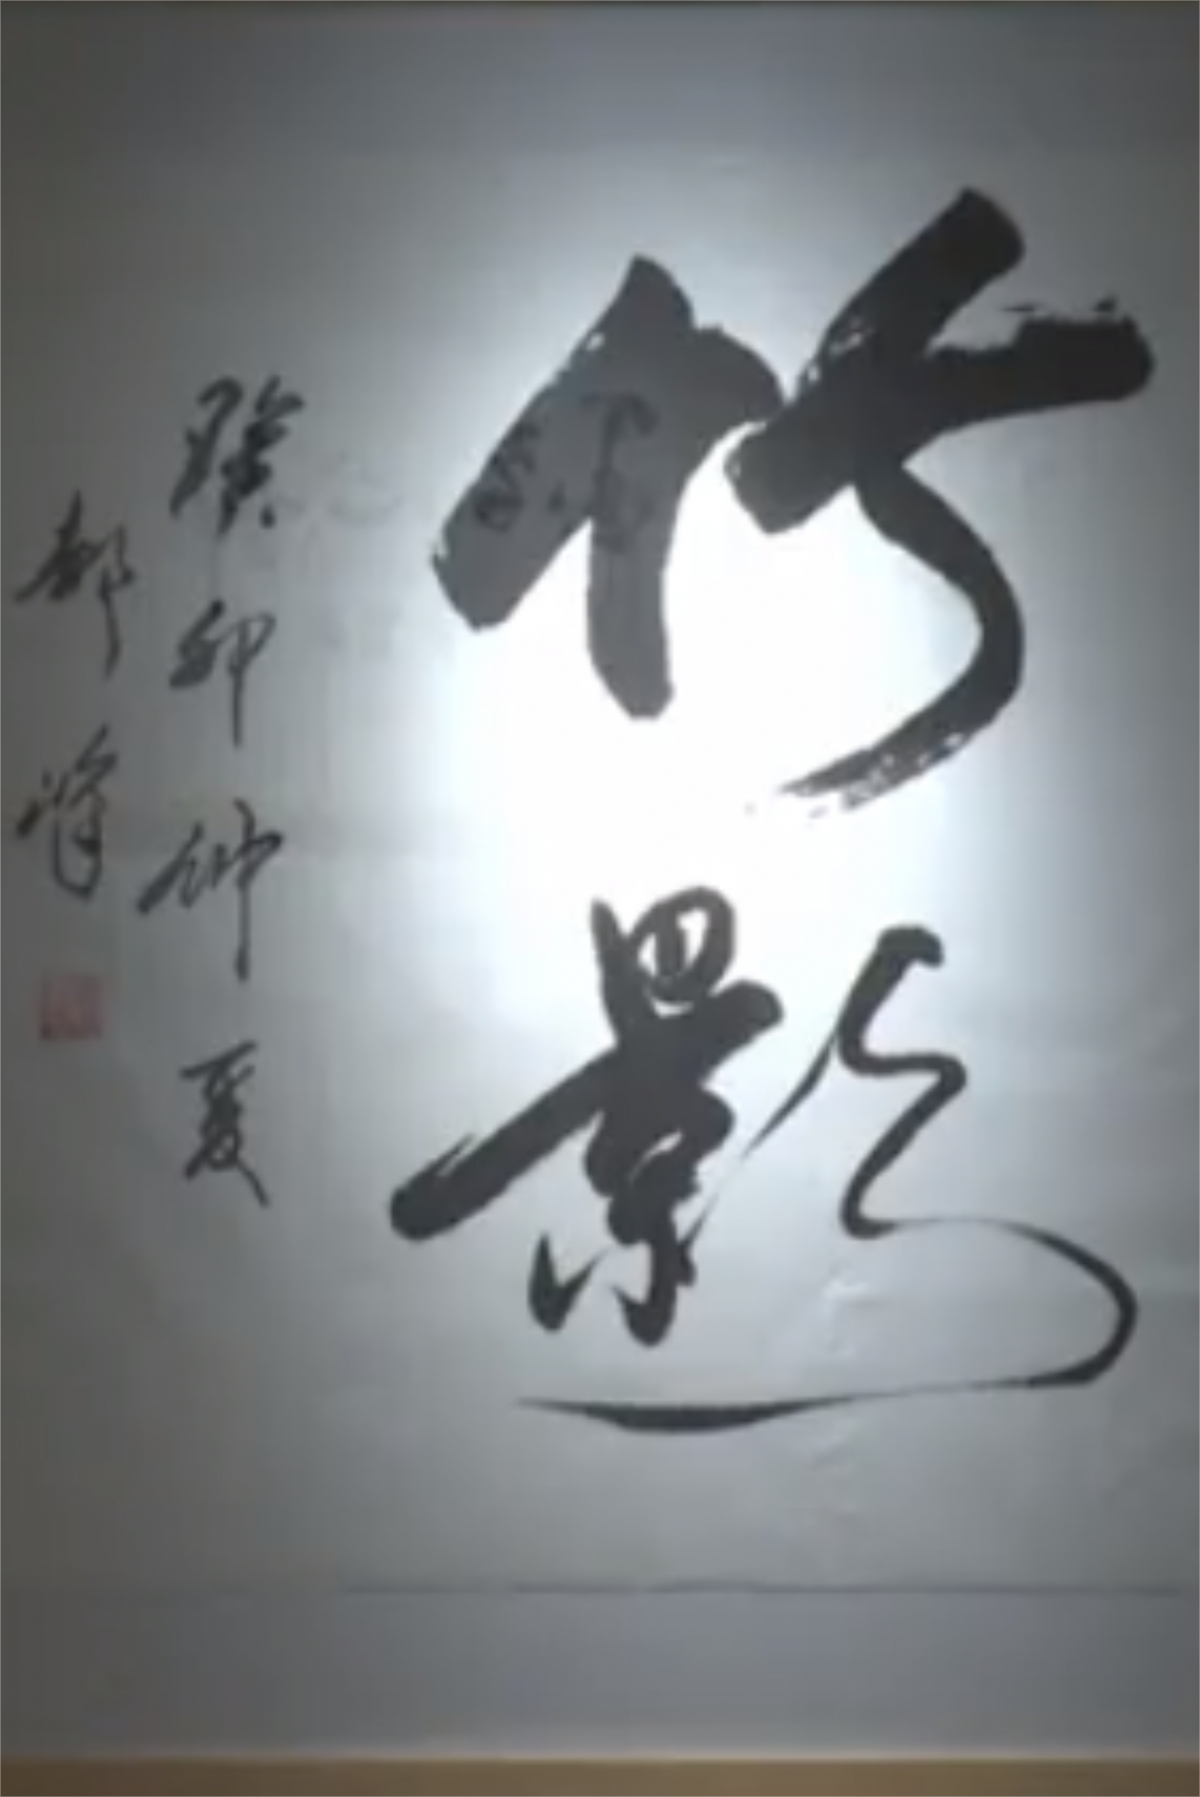 竹影
癸卯仲夏
郝峰